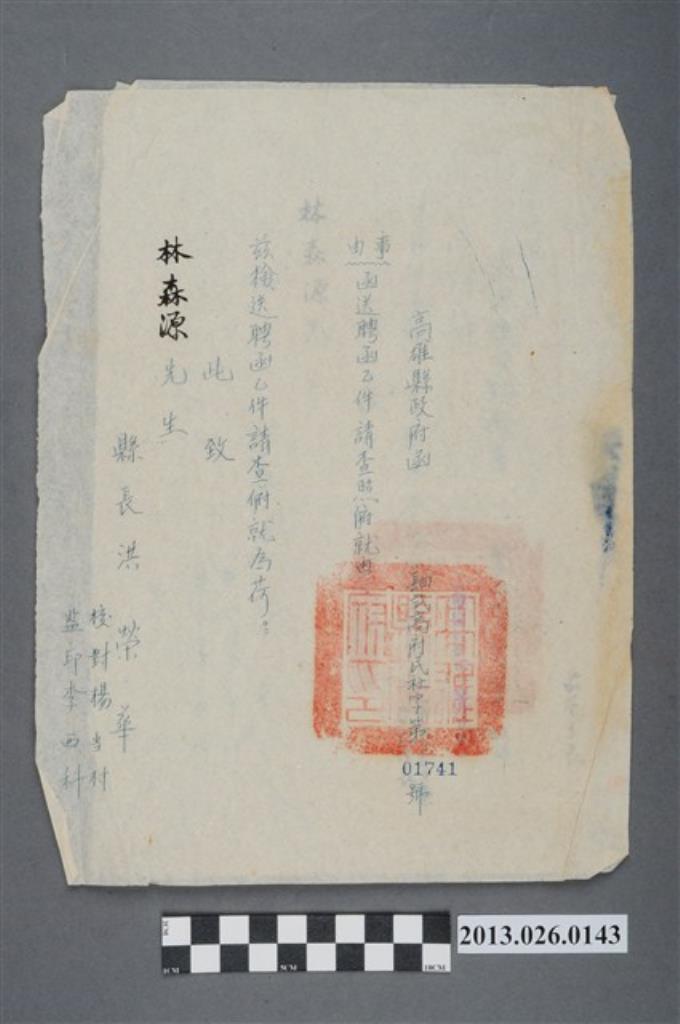 高雄縣政府函
高府民社字第
01741
號
事由
函送聘函乙件請查照俯就由
茲檢送聘函乙件請查俯就為荷。
此致
林森源
先生
縣長洪榮華
校對楊
監印李西科
林森源
2013.026.0143
1CM
5CM
10CM